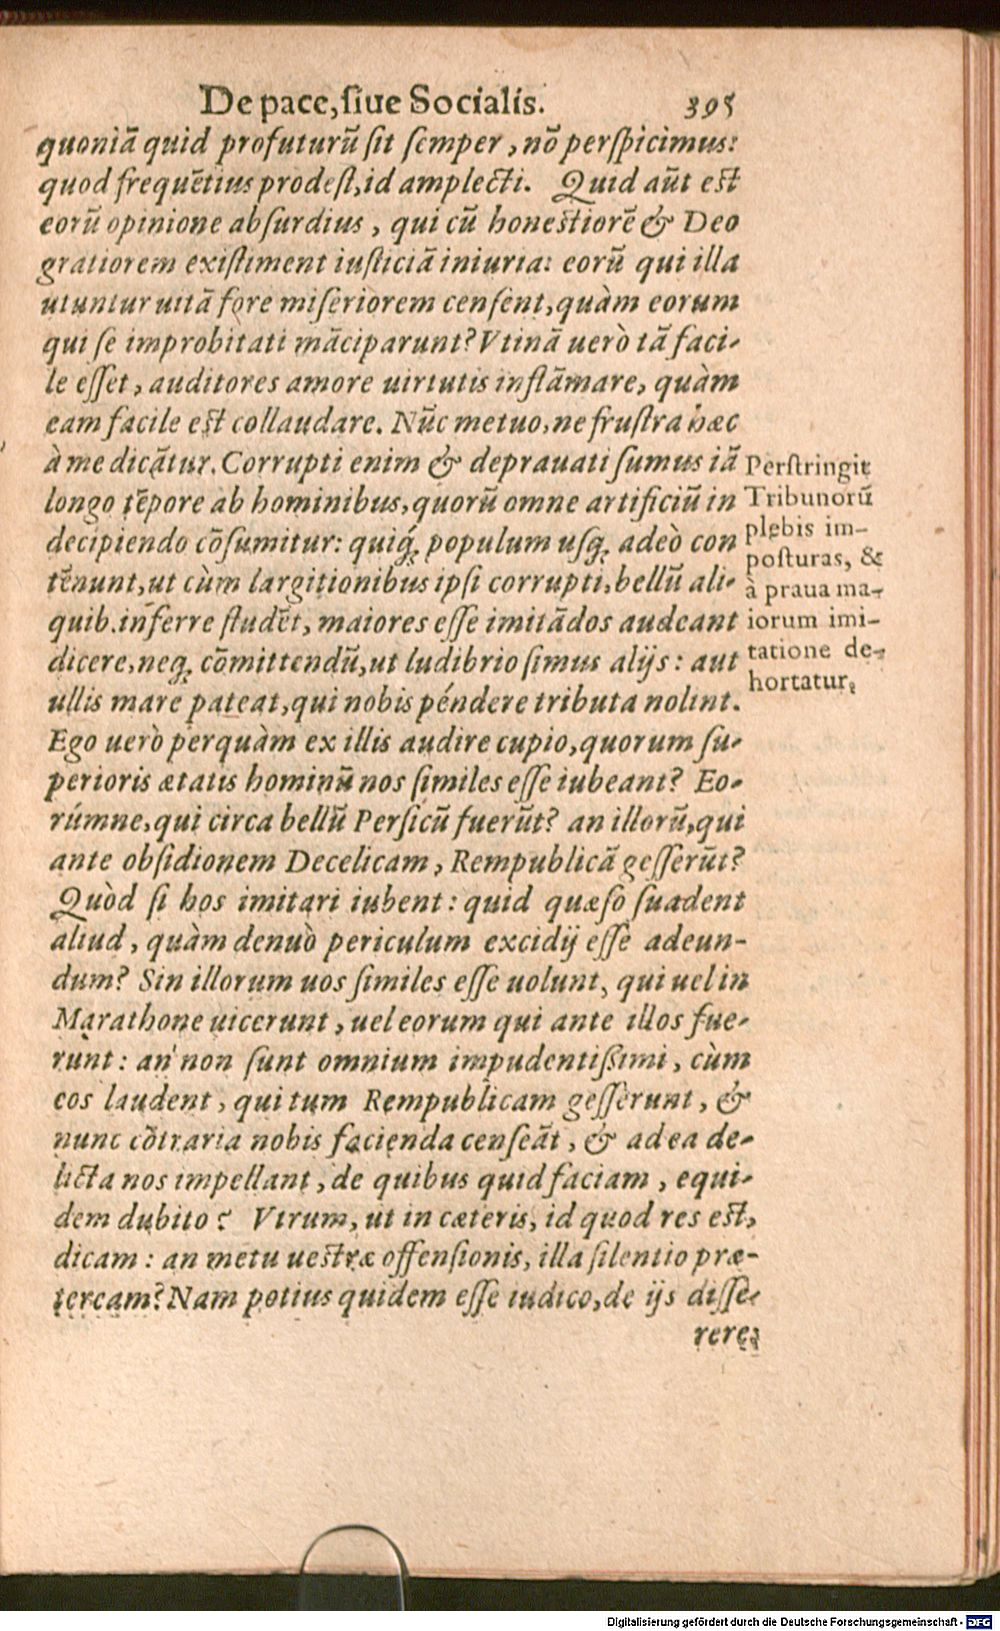 De pace, siue Socialis. 395
quoniã quid profuturũ sit semper, nõ perspicimus:
quod frequẽtius prodest, id amplecti. Quid aũt est
eorũ opinione absurdius, qui cũ honestiorẽ & Deo
gratiorem existiment iusticiã iniuria: eorũ qui illa
utuntur uitã fore miseriorem censent, quàm eorum
qui se improbitati mãciparunt? Vtinã uerò tã faci-
le esset, auditores amore uirtutis inflãmare, quàm
eam facile est collaudare. Nũc metuo, ne frustra hæc
à me dicãtur. Corrupti enim & deprauati sumus iã
longo tẽpore ab hominibus, quorũ omne artificiũ in
decipiendo cõsumitur: quiq́; populum usq; adeò con
tẽnunt, ut cùm largitionibus ipsi corrupti, bellũ ali-
quib. inferre studẽt, maiores esse imitãdos audeant
dicere, neq; cõmittendũ, ut ludibrio simus alijs: aut
ullis mare pateat, qui nobis péndere tributa nolint.
Ego uerò perquàm ex illis audire cupio, quorum su-
perioris ætatis hominũ nos similes esse iubeant? Eo-
rúmne, qui circa bellũ Persicũ fuerũt? an illorũ, qui
ante obsidionem Decelicam, Rempublicã gesserũt?
Quòd si hos imitari iubent: quid quæso suadent
aliud, quàm denuò periculum excidij esse adeun-
dum? Sin illorum uos similes esse uolunt, qui uel in
Marathone uicerunt, uel eorum qui ante illos fue-
runt: an non sunt omnium impudentissimi, cùm
eos laudent, qui tum Rempublicam gesserunt, &
nunc cõtraria nobis facienda censeãt, & ad ea de-
licta nos impellant, de quibus quid faciam, equi-
dem dubito? Vtrum, ut in cæteris, id quod res est,
dicam: an metu uestræ offensionis, illa silentio præ-
teream? Nam potius quidem esse iudico, de ijs disse-
rere,
Perstringit
Tribunorũ
plebis im-
posturas, &
à praua ma-
iorum imi-
tatione de-
hortatur,
Digitalisierung gefördert durch die Deutsche Forschungsgemeinschaft - DFG